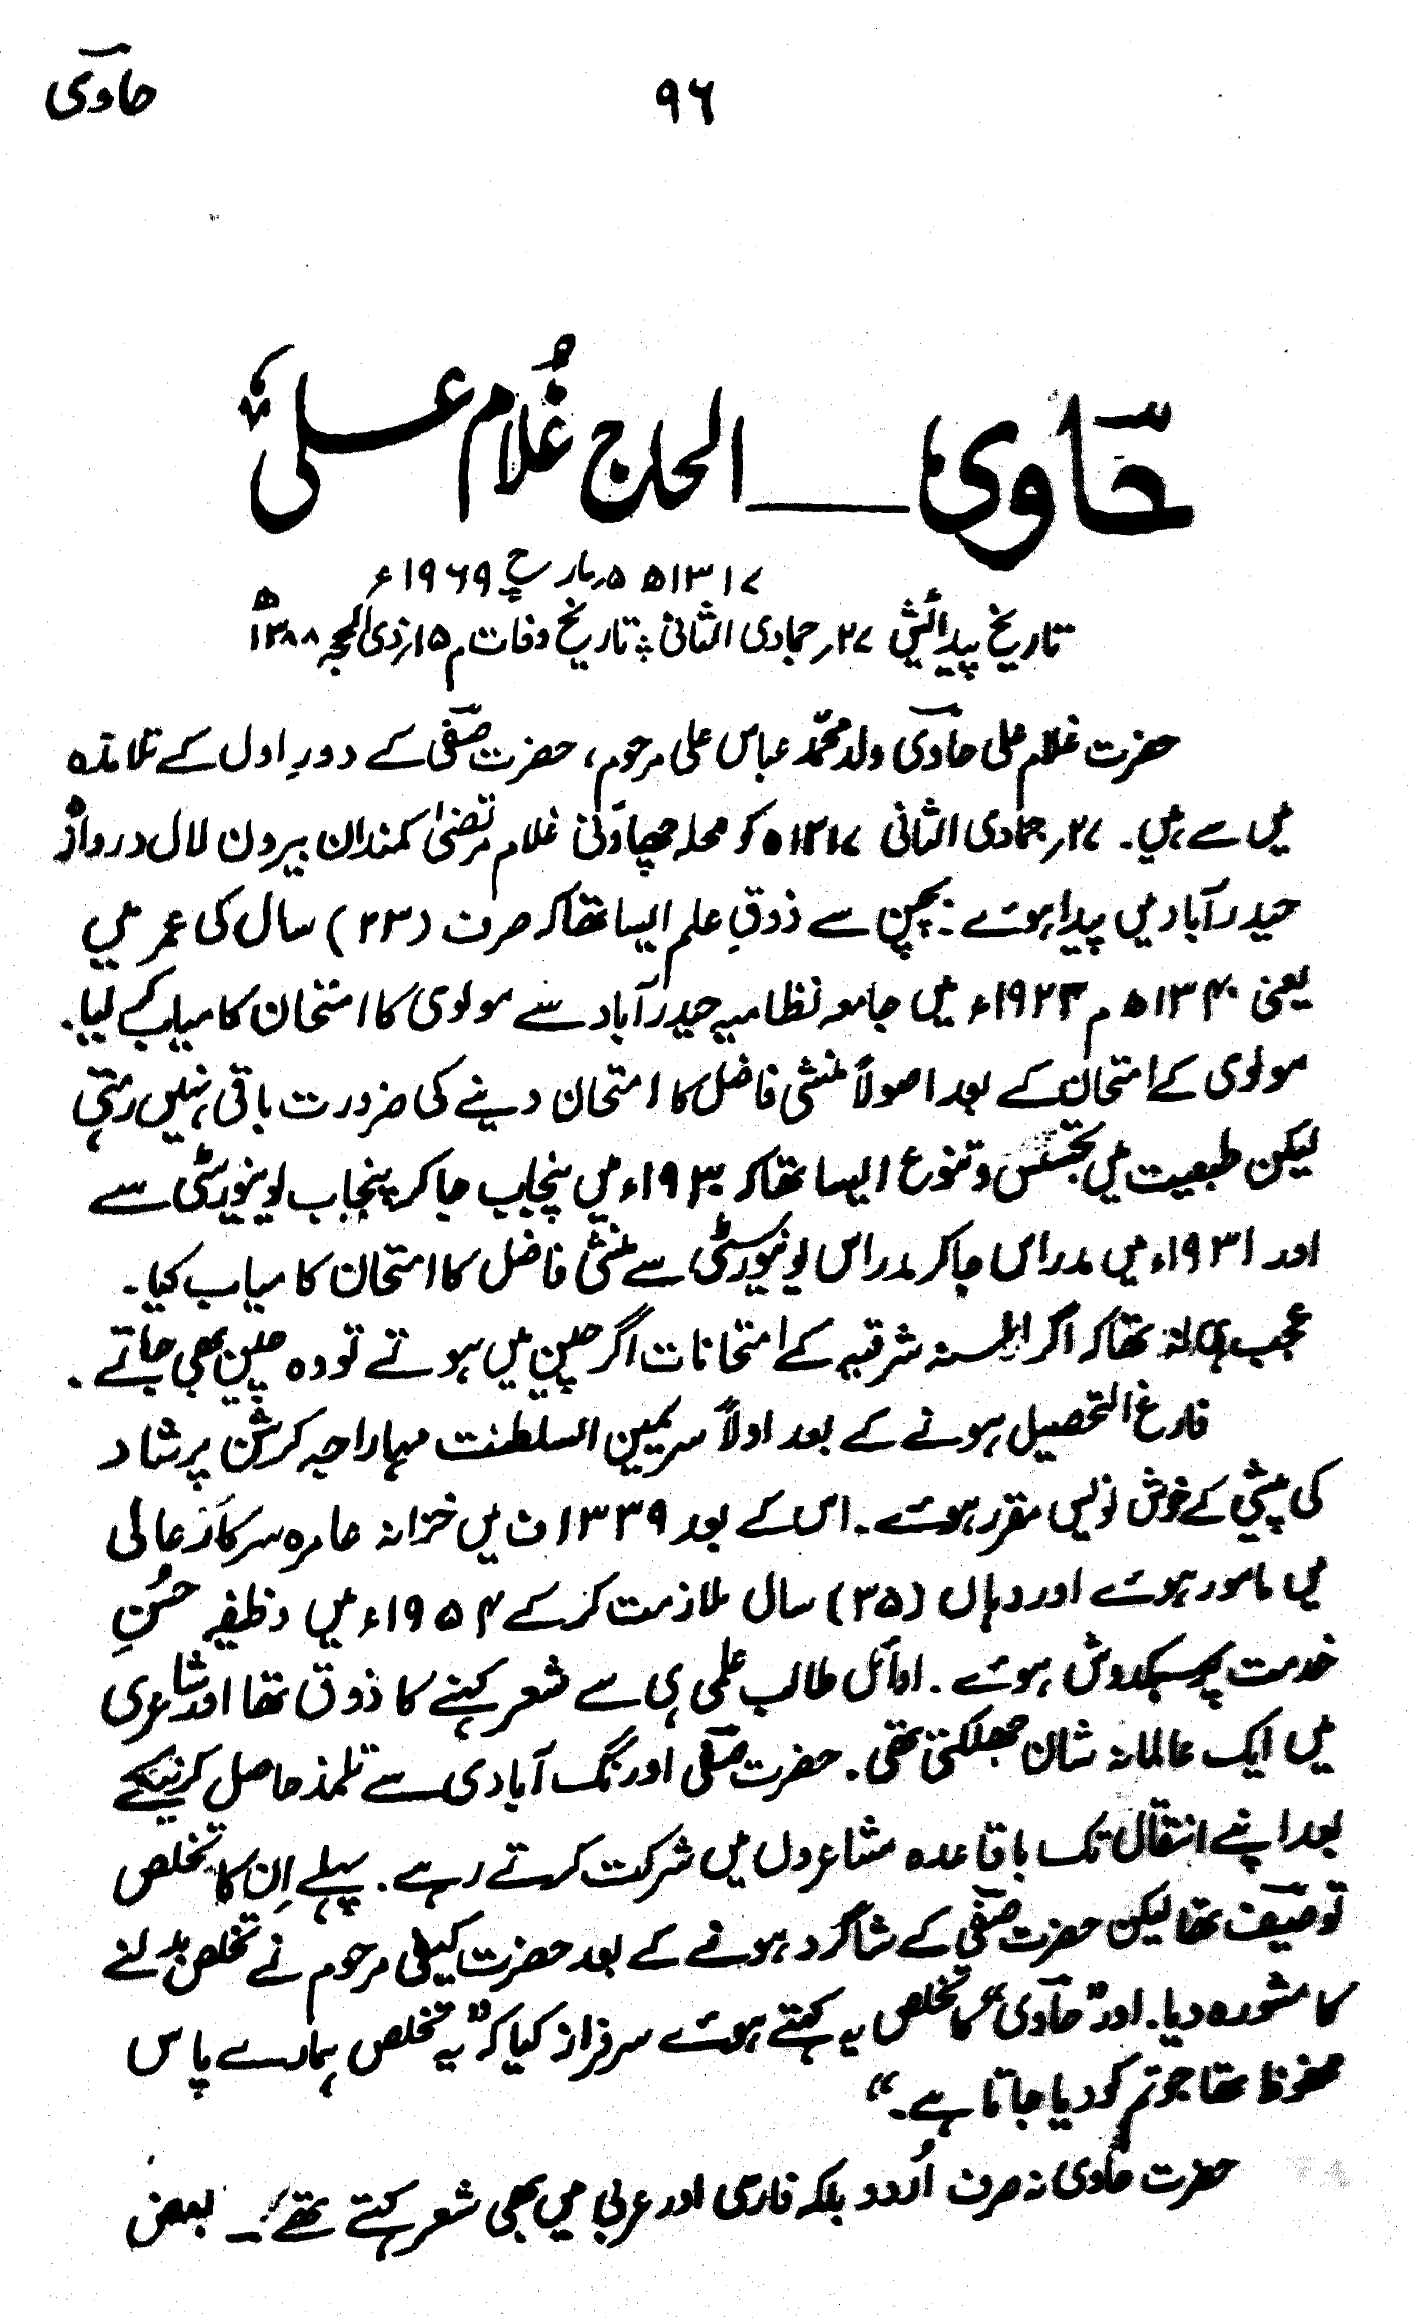 حاوی
۹۶
حاوی ــــ الحاج غلام علی
۱۳۱۷ھ ۵؍مارچ ۱۹۶۹ء
تاریخ پیدائش ۲۷؍جمادی الثانی ؛ تاریخ وفات م ۱۵؍ذی الحجہ ۱۳۸۸ھ
حضرت غلام علی حاوی ولد محمد عباس علی مرحوم، حضرت صفی کے دورِ اول کے تلامذہ
میں سے ہیں۔ ۲۷؍جمادی الثانی ۱۳۱۷ھ کو محلہ چھاؤنی غلام مرتضیٰ کمندان بیرون لال دروازہ
حیدرآباد میں پیدا ہوئے۔ بچپن سے ذوقِ علم ایسا تھا کہ صرف (۲۳) سال کی عمر میں
یعنی ۱۳۴۰ھ م ۱۹۲۳ء میں جامعہ نظامیہ حیدرآباد سے مولوی کا امتحان کامیاب کرلیا۔
مولوی کے امتحان کے بعد اصولاً منشی فاضل کا امتحان دینے کی ضرورت باقی نہیں رہتی
لیکن طبعیت میں تجسس و تنوع ایسا تھا کہ ۱۹۳۰ء میں پنجاب جاکر پنجاب یونیورسٹی سے
اور ۱۹۳۱ء میں مدراس جاکر مدراس یونیورسٹی سے منشی فاضل کا امتحان کامیاب کیا۔
عجب نہ تھا کہ اگر السنہ شرقیہ کے امتحانات اگر چین میں ہوتے تو وہ چین بھی جاتے۔
فارغ التحصیل ہونے کے بعد اولاً سر یمین السلطنت مہاراجہ کرشن پرشاد
کی پیشی کے خوش نویس مقرر ہوئے۔ اس کے بعد ۱۳۳۹ف میں خزانہ عامرہ سرکار عالی
میں مامور ہوئے اور وہاں (۳۵) سال ملازمت کرکے ۱۹۵۴ء میں وظیفہ حُسنِ
خدمت پر سبکدوش ہوئے۔ اوائل طالب علمی ہی سے شعر کہنے کا ذوق تھا اور شاعری
میں ایک عالمانہ شان جھلکتی تھی۔ حضرت صفی اورنگ آبادی سے تلمذ حاصل کرنیکے
بعد اپنے انتقال تک باقاعدہ مشاعروں میں شرکت کرتے رہے۔ پہلے اِن کا تخلص
توصیف تھا لیکن حضرت صفی کے شاگرد ہونے کے بعد حضرت کیفی مرحوم نے تخلص بدلنے
کا مشورہ دیا۔ اور "حاوی" کا تخلص یہ کہتے ہوئے سرفراز کیا کہ "یہ تخلص ہمارے پاس
محفوظ تھا جو تم کو دیا جاتا ہے۔"
حضرت حاوی نہ صرف اُردو بلکہ فارسی اور عربی میں بھی شعر کہتے تھے۔ بعض